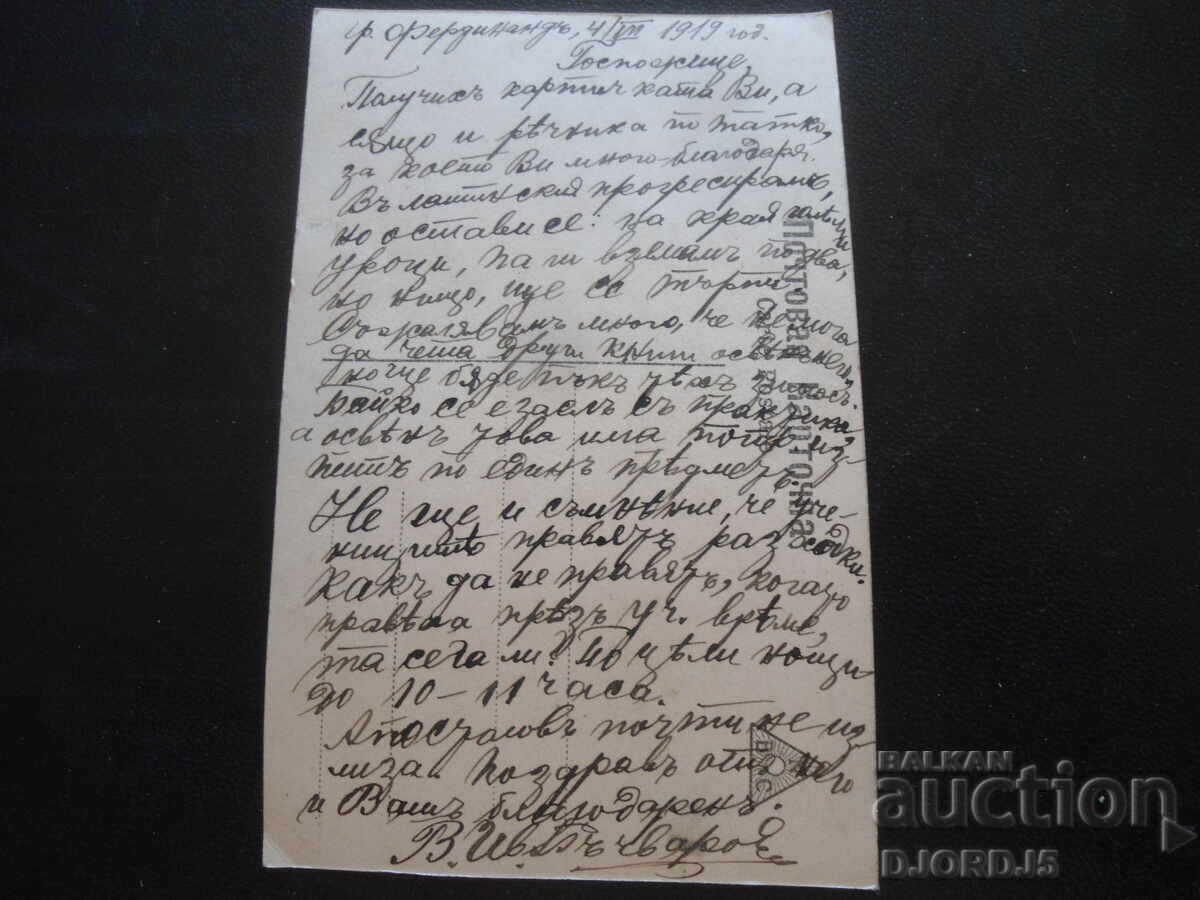 гр. Фердинандъ, 4/VII 1919 год.
Госпожице,
Получихъ картичката Ви, а
сѫщо и рѣчника по татко,
за което Ви много благодаря.
Въ латинския прогресирамъ,
но остави се: на края
уроци, па ги взѣмамъ по два,
но нищо, ще се търпи.
Съжалявамъ много, че не мога
да чета други книги освѣнъ нея,
но ще бѫде пъкъ
Байко се е заелъ съ практика
а освѣнъ това има поправ. из-
питъ по единъ прѣдметъ.
Не ще и съмнѣние, че уче-
ницитѣ правятъ разходки.
Какъ да не правятъ, когато
правѣха прѣзъ уч. врѣме,
та сега ли? По цѣли нощи
до 10-11 часа.
Апостоловъ почти не из-
лиза. Поздравъ отъ него
и Вашъ благодаренъ.
В. Ив. Бъчваровъ
ПОЩТОВА КАРТОЧКА
BALKAN
auction
DJORDJ5